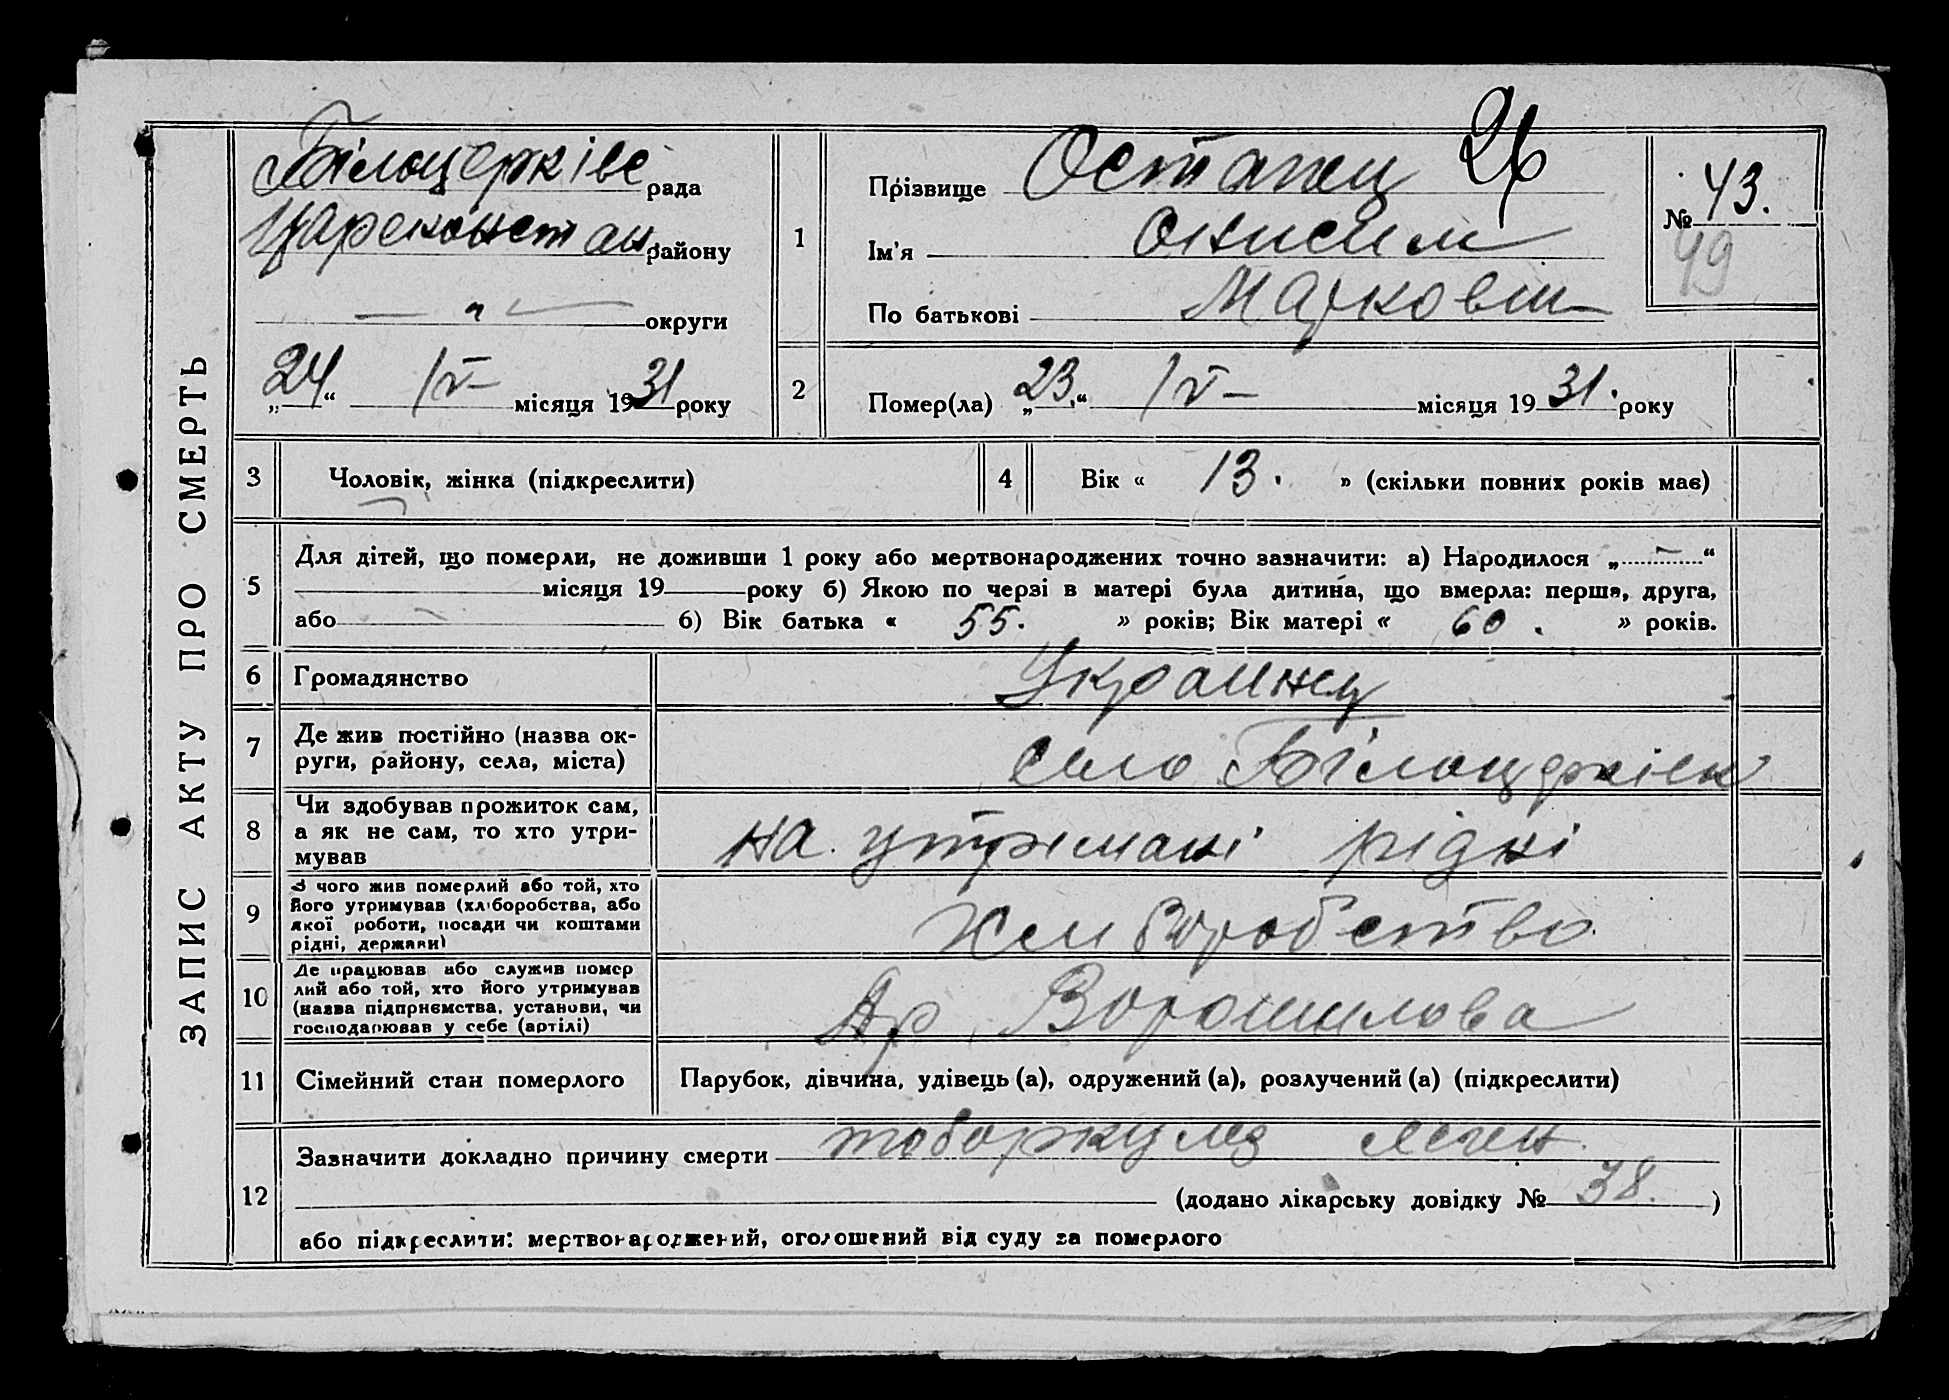 ЗАПИС АКТУ ПРО СМЕРТЬ
Білоцерківс рада
Цареконстан району
— " — округи
„24“ IV місяця 1931 року
26
№ 43.
49
1 Прізвище Остапец
Ім'я Онисим
По батькові Маркович
2 Помер(ла) „23.“ IV — місяця 1931. року
3 Чоловік, жінка (підкреслити)
4 Вік « 13. » (скільки повних років має)
5 Для дітей, що померли, не доживши 1 року або мертвонароджених точно зазначити: а) Народилося „ — “
місяця 19 року б) Якою по черзі в матері була дитина, що вмерла: перша, друга,
або — 6) Вік батька « 55. » років; Вік матері « 60. » років.
6 Громадянство Украинец
7 Де жив постійно (назва ок-
руги, району, села, міста) село Білоцерківк
8 Чи здобував прожиток сам,
а як не сам, то хто утри-
мував на утримані рідні
9 З чого жив померлий або той, хто
його утримував (хліборобства, або
якої роботи, посади чи коштами
рідні, держави) хлиборобство.
10 Де працював або служив помер
лий або той, хто його утримував
(назва підприємства, установи, чи
господарював у себе (артілі) Ар. Ворошилова
11 Сімейний стан померлого Парубок, дівчина, удівець (а), одружений (а), розлучений (а) (підкреслити)
12 Зазначити докладно причину смерти тоборкулез леген.
(додано лікарську довідку № 38. )
або підкреслити: мертвонароджений, оголошений від суду за померлого